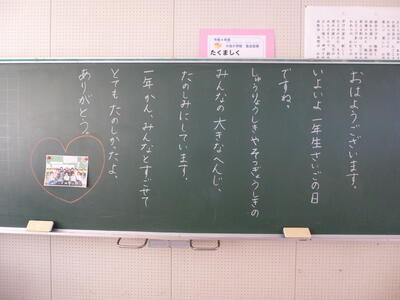 おはようございます。
いよいよ一年生さいごの日
ですね。
しゅうりょうしきやそつぎょうしきの
みんなの大きなへんじ、
たのしみにしています。
一年かん、みんなとすごせて
とてもたのしかったよ。
ありがとう。
たくましく